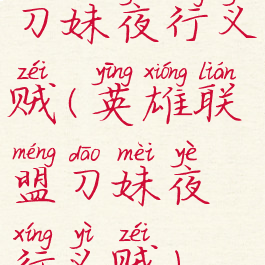 刀妹夜行义
zéi yīng xióng lián
贼(英雄联
méng dāo mèi yè
盟刀妹夜
xíng yì zéi
行义贼)